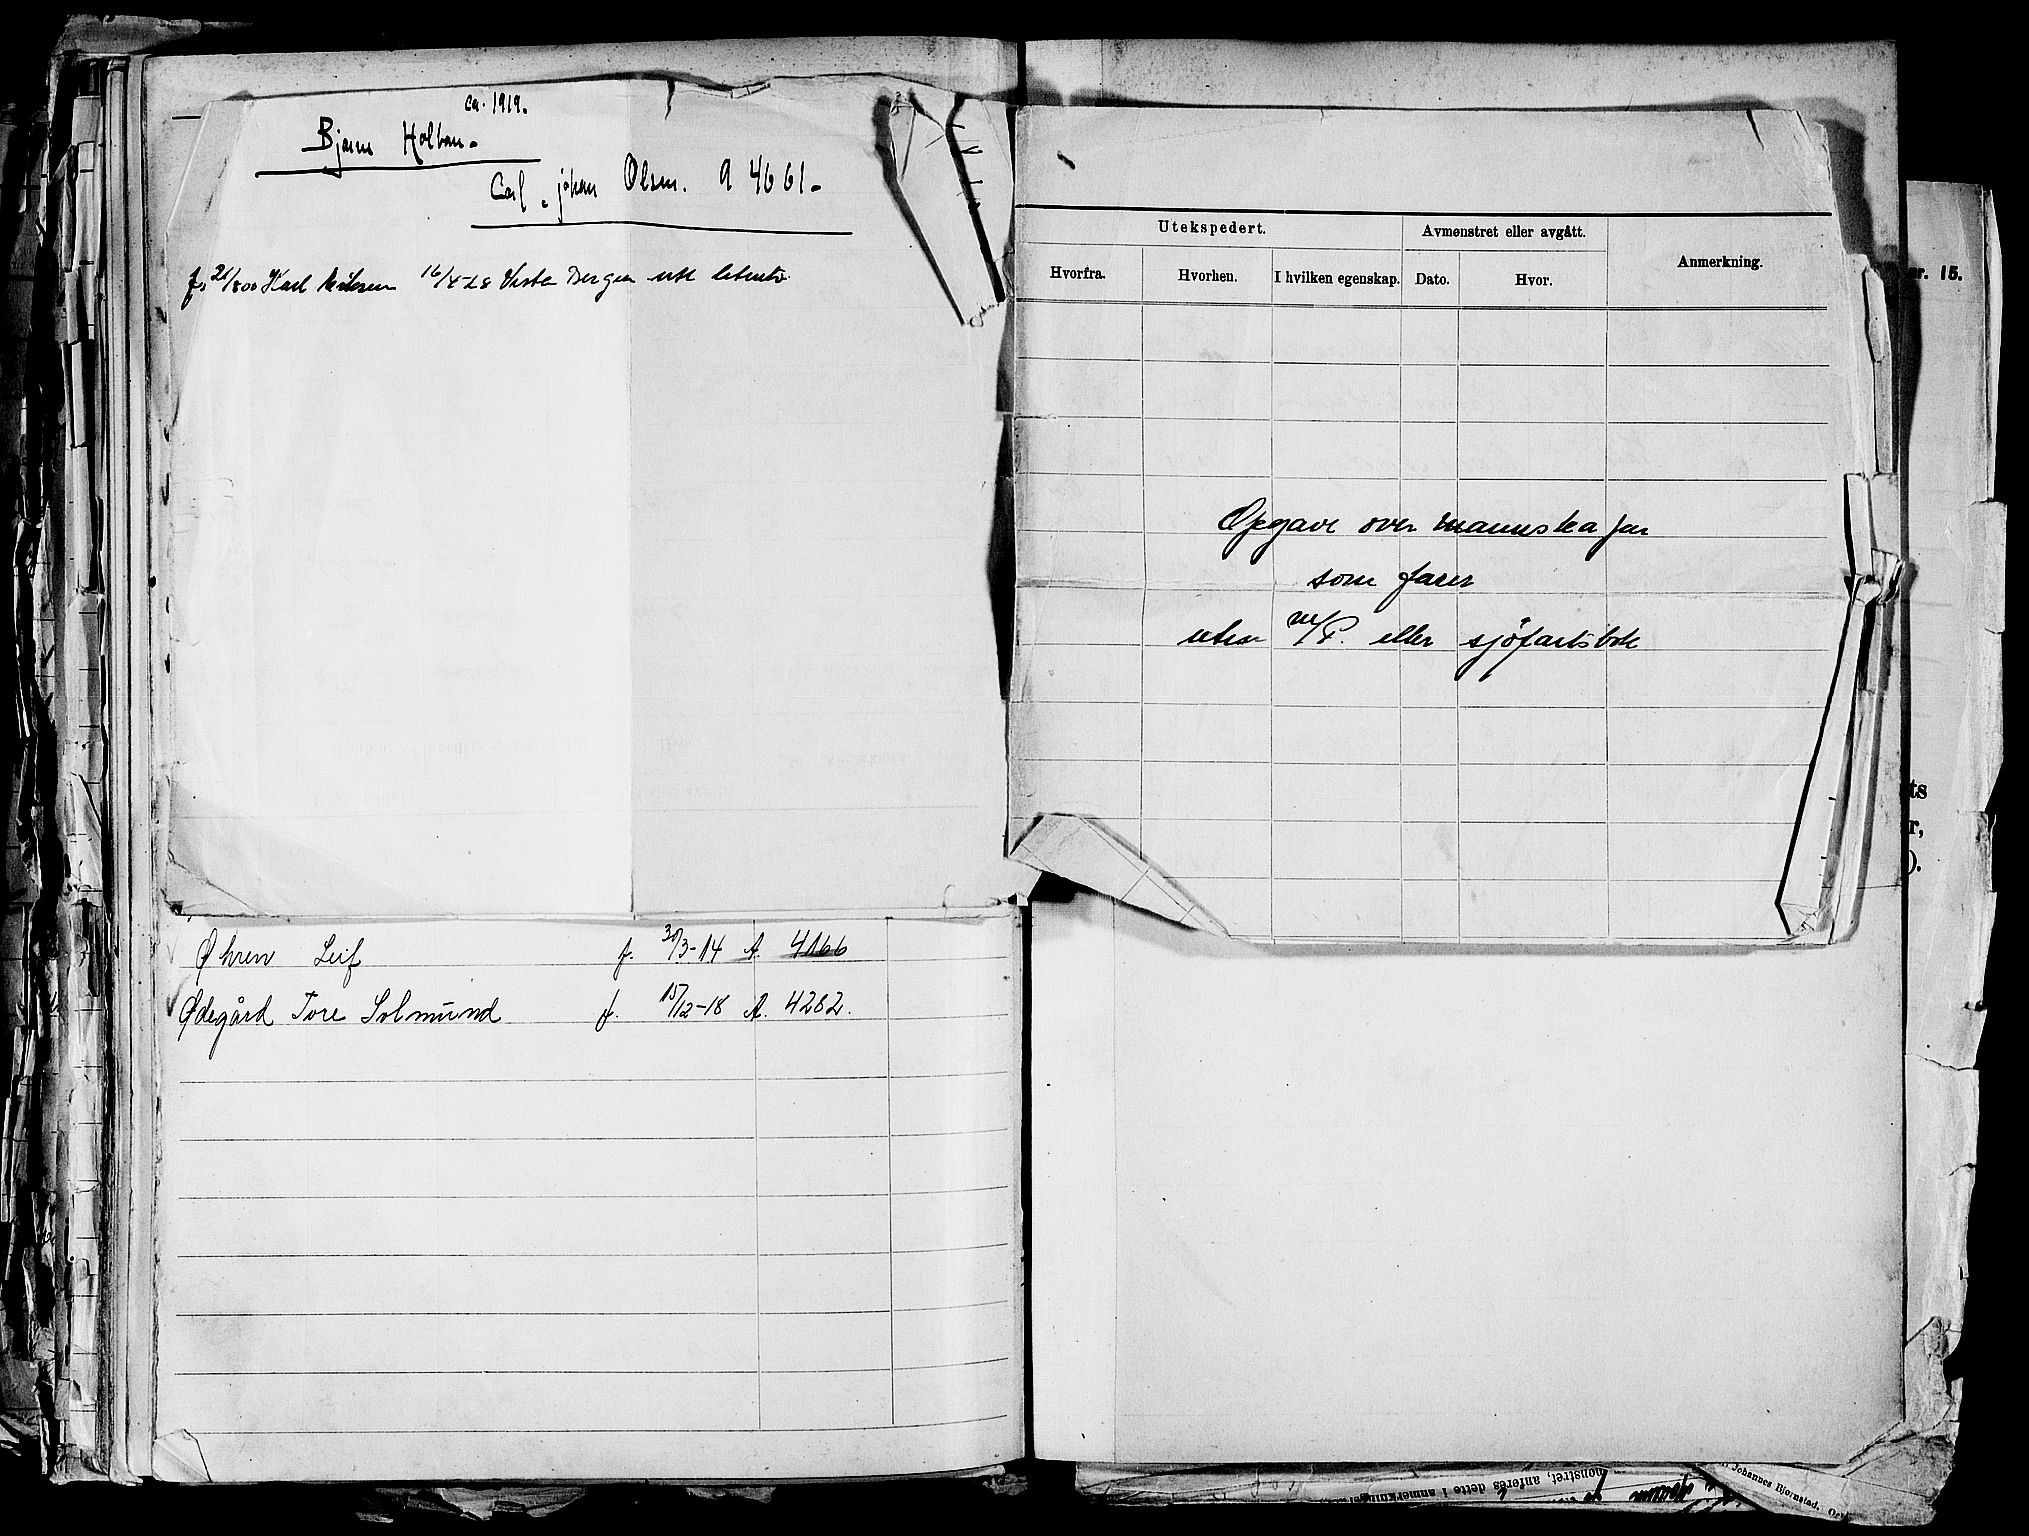 ca. 1919.
Bjarne Holtan.
Carl Johan Olsen. A 4661.
f. 21/8 00 Karl 16/4-28 Vesta Bergen utst
Øhren Leif f. 30/3-14 A. 4166
Ødegård Tore Solmund f. 15/12-18 A. 4282.
Utekspedert.
Avmønstret eller avgått.
Anmerkning.
Hvorfra.
Hvorhen.
I hvilken egenskap.
Dato.
Hvor.
Opgave over mannskaper
som farer
uten m/r. eller sjöfartsbok
nr. 15.
ts
r,
).
mønstret, anføres dette i
Johannes Bjørnstad.